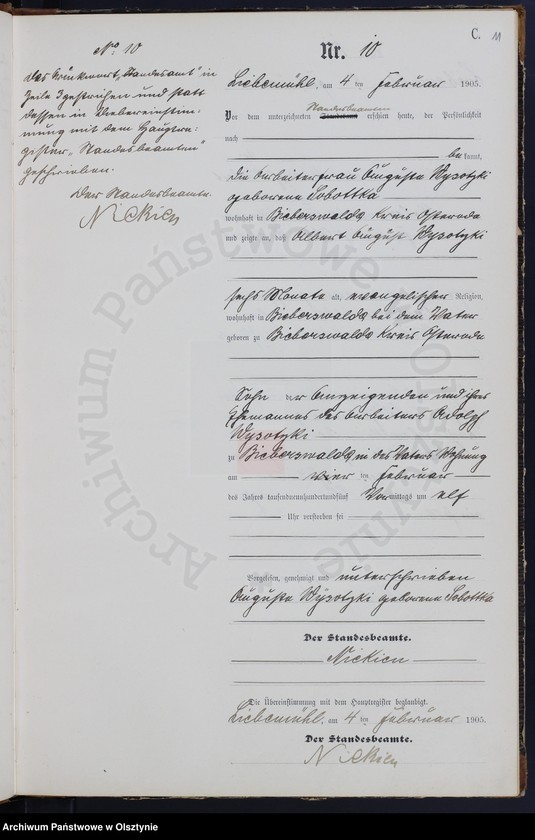 C. 11
Nr. 10
No 10
Das Druckwort „Standesamt“ in
Zeile 3 gestrichen und statt
dessen in Uebereinstim-
mung mit dem Hauptre-
gister „Standesbeamten“
geschrieben.
Der Standesbeamte.
Nickien
Liebemühl, am 4 ten Februar 1905.
Standesbeamten
Vor dem unterzeichneten erschien heute, der Persönlichkeit
nach
bekannt,
die Arbeiterfrau Auguste Wysotzki
geborene Sobottka
wohnhaft in Bieberswalde Kreis Osterode
und zeigte an, daß Albert August Wysotzki
sechs Monate alt, evangelischer Religion,
wohnhaft in Bieberswalde bei dem Vater
geboren zu Bieberswalde Kreis Osterode
Sohn der Anzeigenden und ihres
Ehemannes des Arbeiters Adolph
Wysotzki
zu Bieberswalde, in des Vaters Wohnung
am vier ten Februar
des Jahres tausendneunhundertundfünf Vormittags um elf
Uhr verstorben sei
Vorgelesen, genehmigt und unterschrieben
Auguste Wysotzki geborene Sobottka
Der Standesbeamte.
Nickien
Die Übereinstimmung mit dem Hauptregister beglaubigt.
Liebemühl, am 4 ten Februar 1905.
Der Standesbeamte.
Nickien
Archiwum Państwowe w Olsztynie
Archiwum Państwowe w Olsztynie